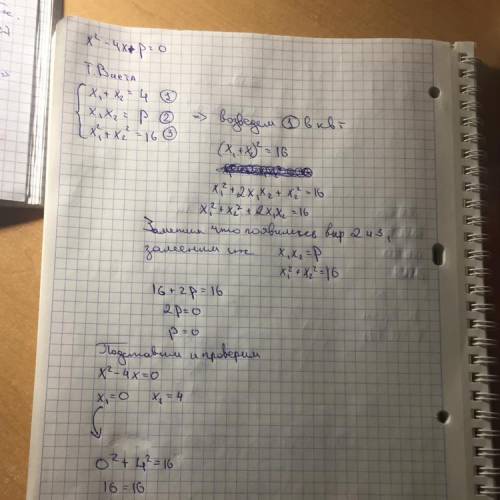 x² - 4x + p = 0
Т. Виета
x₁ + x₂ = 4 ①
x₁x₂ = p ②
x₁² + x₂² = 16 ③
=> возведем ① в кв
(x₁ + x₂)² = 16
x₁² + 2x₁x₂ + x₂² = 16
x₁² + x₂² + 2x₁x₂ = 16
Заметим что появились выр 2 и 3,
заменим их x₁x₂ = p
x₁² + x₂² = 16
16 + 2p = 16
2p = 0
p = 0
Подставим и проверим
x² - 4x = 0
x₁ = 0 x₂ = 4
0² + 4² = 16
16 = 16